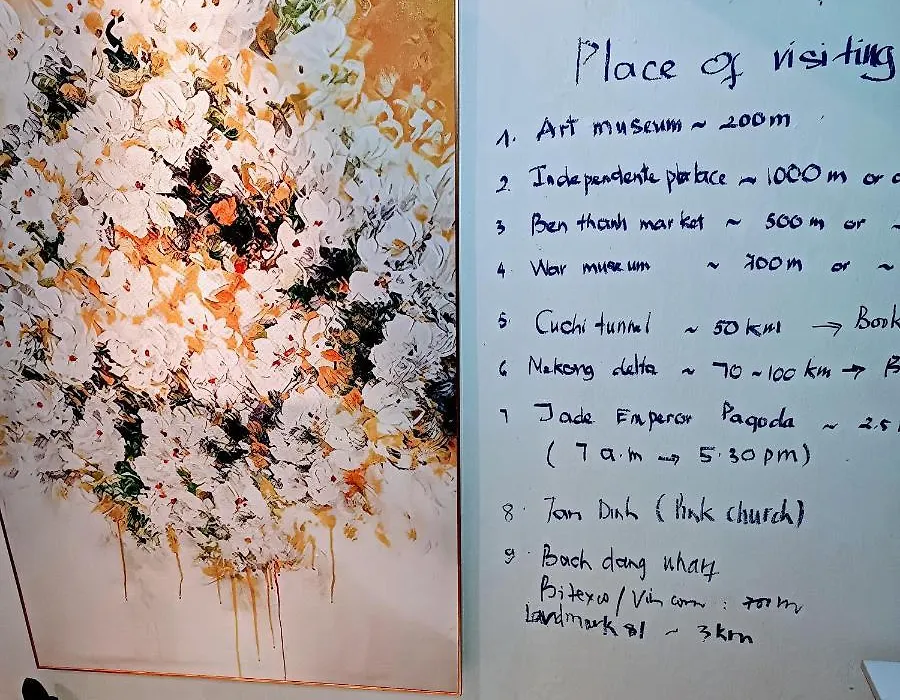 Place of visiting
1. Art museum ~ 200m
2 Independente palace ~ 1000 m or
3 Ben thanh market ~ 500 m or ~
4 War museum ~ 700m or ~
5. Cuchi tunnel ~ 50 km → Book
6 Mekong delta ~ 70 ~ 100 km → B
7 Jade Emperor Pagoda ~ 2.5
( 7 a.m → 5.30 pm)
8. Tan Dinh (Pink church)
9 Bach dang wharf
Bitexco / Vin com : 700m
Landmark 81 ~ 3 km